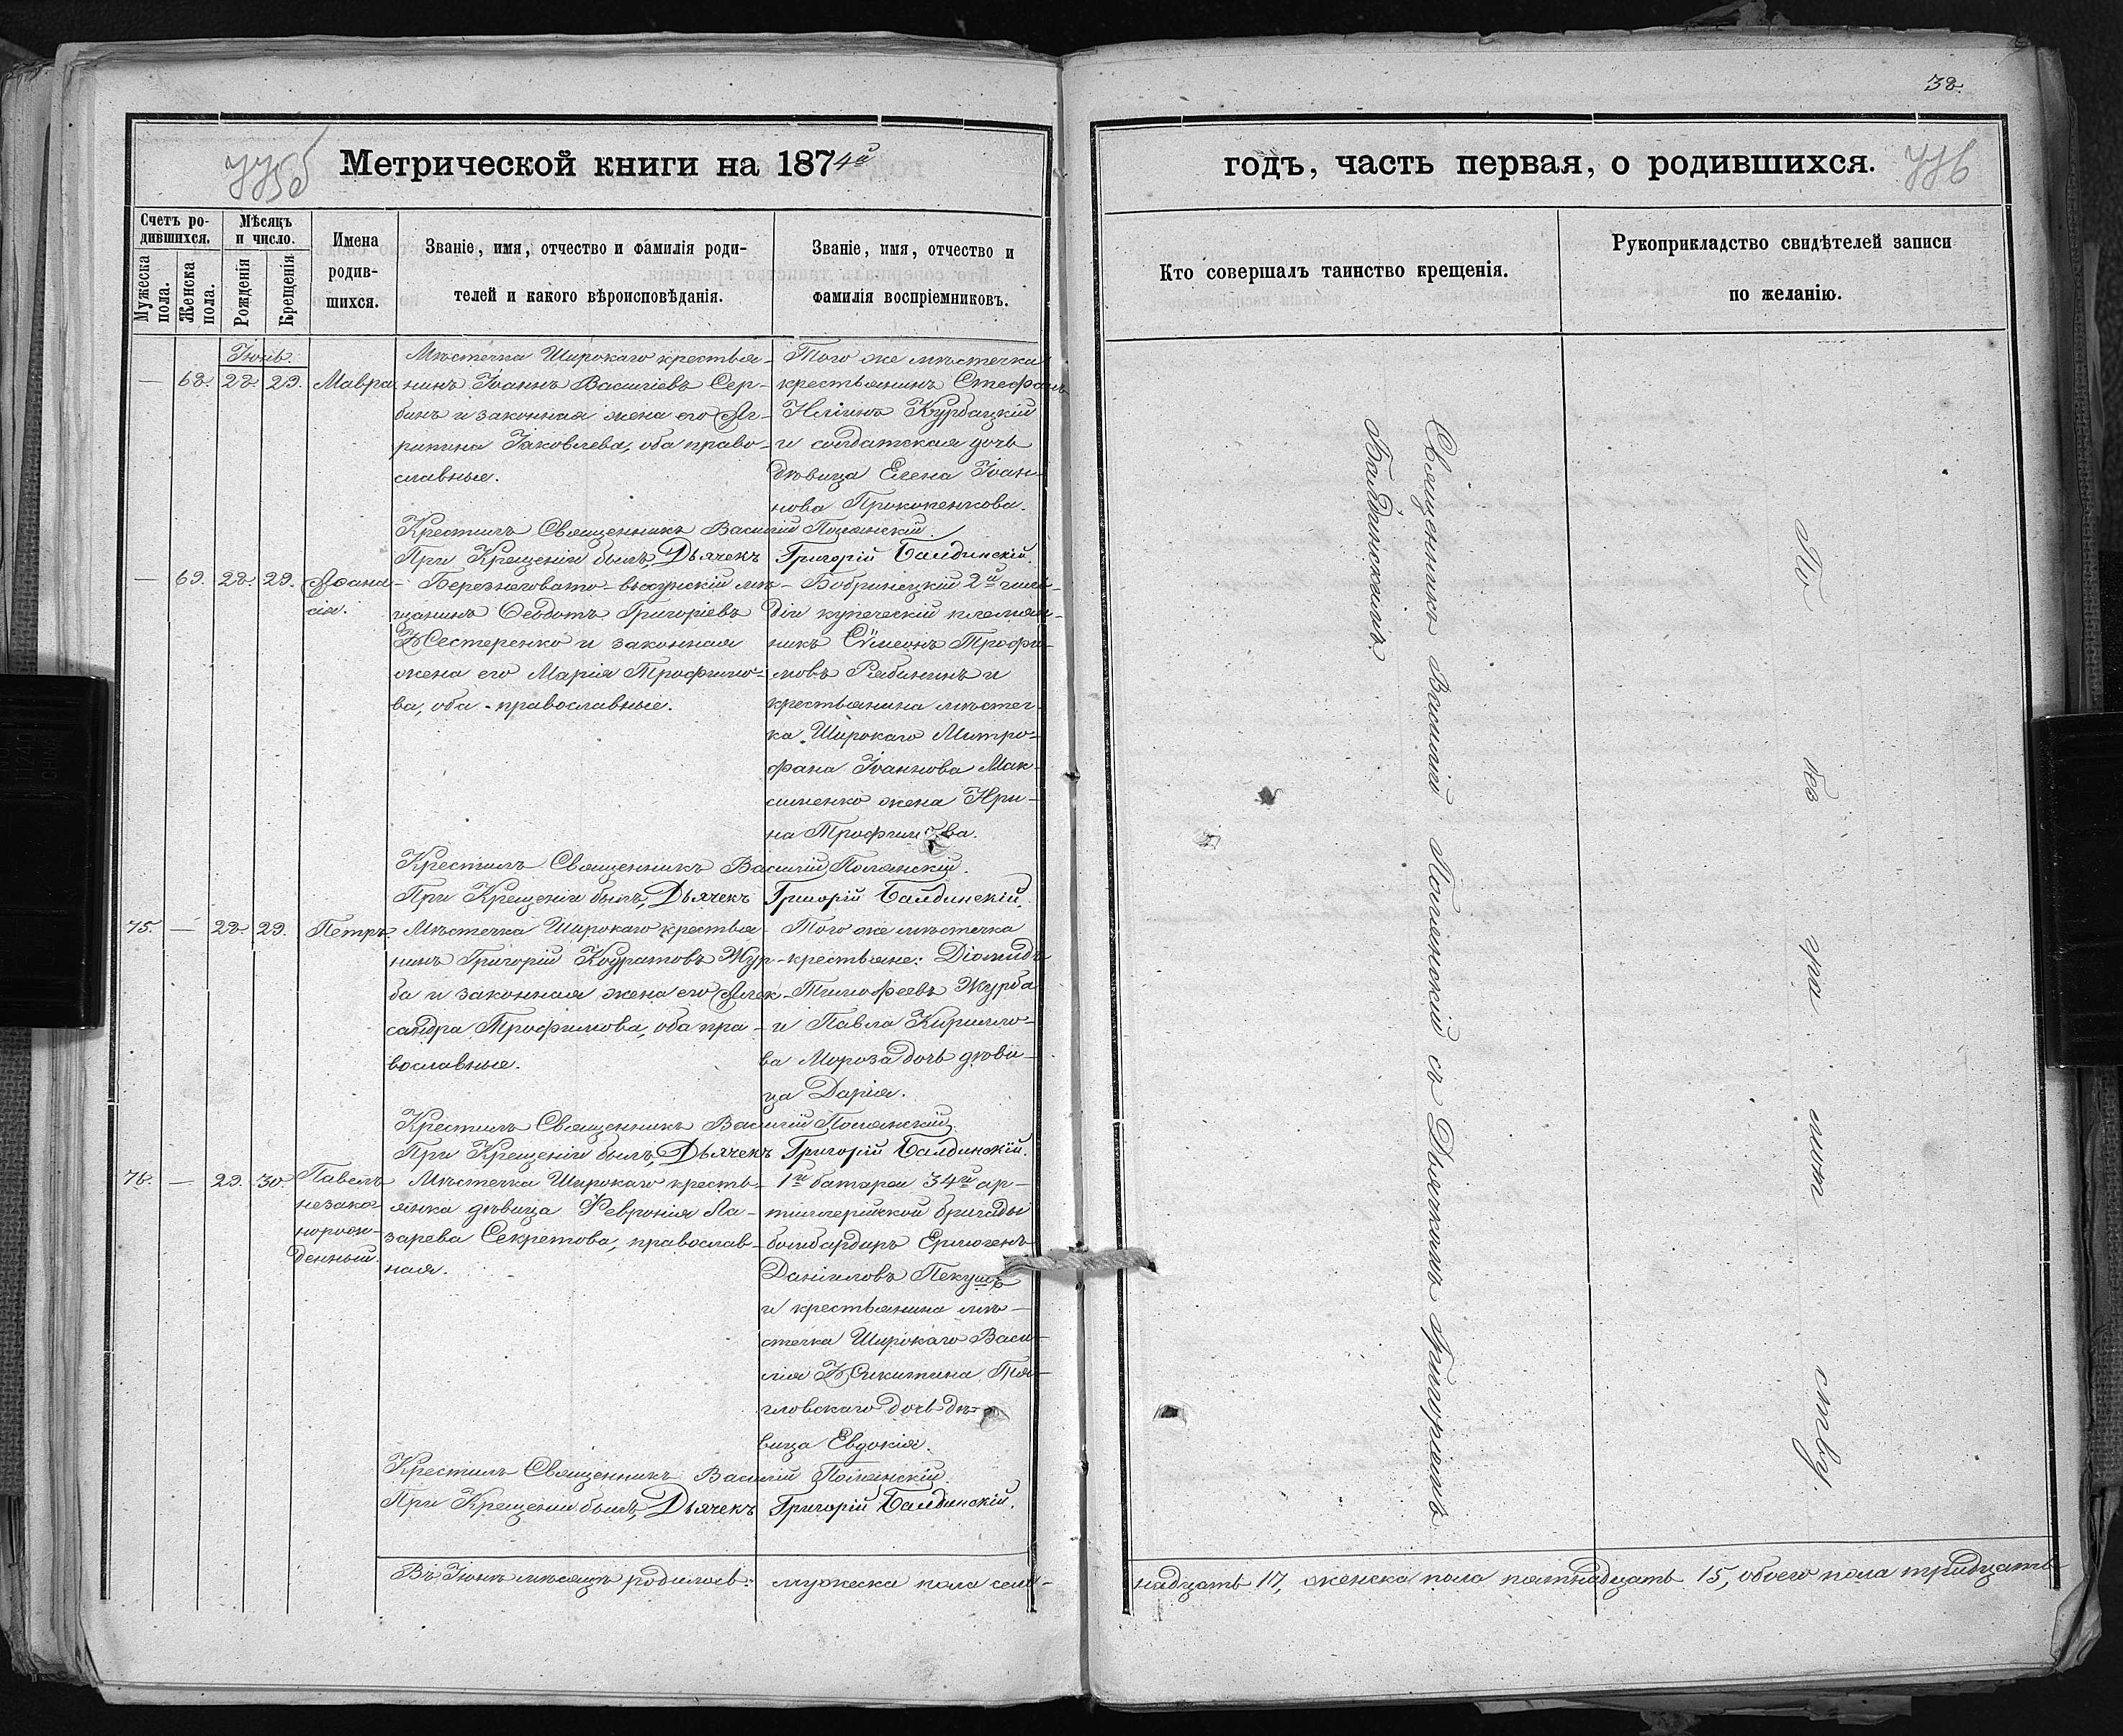 38.
775б Метрической книги на 1874й
годъ, часть первая, о родившихся. 776
Счетъ родившихся.
Мѣсяцъ и число.
Мужеска пола.
Женска пола.
Рожденія
Крещенія
Имена родившихся.
Званіе, имя, отчество и фамилія роди-
телей и какого вѣроисповѣданія.
Званіе, имя, отчество и
фамилія воспріемниковъ.
Кто совершалъ таинство крещенія.
Рукоприкладство свидѣтелей записи
по желанію.
Іюнь.
— 68. 28. 29. Мавра
Мѣстечка Широкаго крестья-
нинъ Іоаннъ Василіевъ Сер-
бинъ и законная жена его Аг-
рипина Іаковлева, оба право-
славные.
Того же мѣстечка
крестьянинъ Стефанъ
Иліинъ Курбацкій
и солдатская дочь
дѣвица Елена Іоан-
нова Прокопенкова.
Крестилъ Священникъ Василій Полянскій.
При Крещеніи былъ, Дьячекъ Григорій Балдинскій.
— 69. 28. 29. Аѳана-
сія.
Березнеговато-высунскій мѣ-
щанинъ Ѳеодотъ Григоріевъ
Нестеренко и законная
жена его Марія Трофимо-
ва, оба православные.
Бобринецкій 2й гиль-
діи купеческій племян-
никъ Сѵмеонъ Трофи-
мовъ Рябининъ и
крестьянина мѣстеч-
ка Широкаго Митро-
фана Іоаннова Мак-
сименко жена Ири-
на Трофимова.
Крестилъ Священникъ Василій Полянскій.
При Крещеніи былъ, Дьячекъ Григорій Балдинскій.
75. — 28. 29. Петръ.
Мѣстечка Широкаго крестья-
нинъ Григорій Кодратовъ Жур-
ба и законная жена его Алек-
сандра Трофимова, оба пра-
вославные.
Того же мѣстечка
крестьяне: Діомидъ
Тимофеевъ Журба
и Павла Кирилло-
ва Мороза дочь дѣви-
ца Дарія.
Крестилъ Священникъ Василій Полянскій.
При Крещеніи былъ, Дьячекъ Григорій Балдинскій.
76. — 29. 30. Павелъ
незако-
норож-
денный.
Мѣстечка Широкаго кресть-
янка дѣвица Февронія Ла-
зарева Секретова, православ-
ная.
1й батареи 34й ар-
тиллерійской бригады
бомбардиръ Ермогенъ
Даніиловъ Пекушъ
и крестьянина мѣ-
стечка Широкаго Васи-
лія Никитина
дочь дѣ-
вица Евдокія.
Крестилъ Священникъ Василій Полянскій.
При Крещеніи былъ, Дьячекъ Григорій Балдинскій.
Въ Іюнѣ мѣсяцѣ родилось: мужеска пола сем-
надцать 17, женска пола пятнадцать 15, обоего пола тридцать
Священникъ Василій Полянскій съ Дьячкомъ Григоріемъ
Балдинскимъ.
По без гра мот ству.